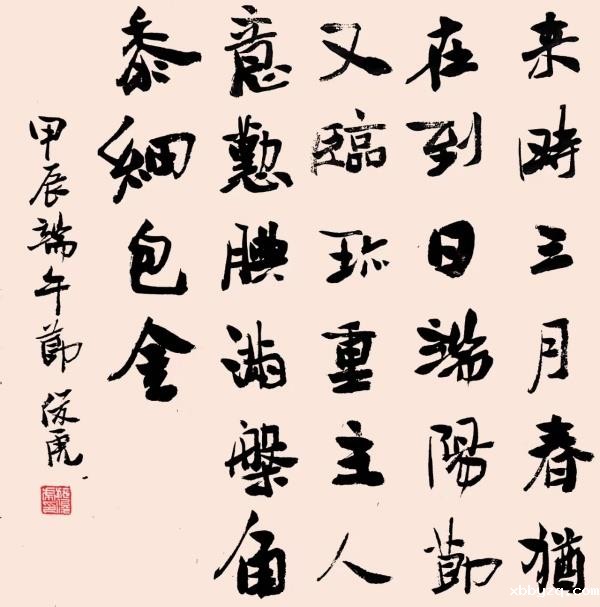 来時三月春猶
在到日端陽節
又臨珎重主人
意懃腆滿槃角
黍細包金
甲辰端午節